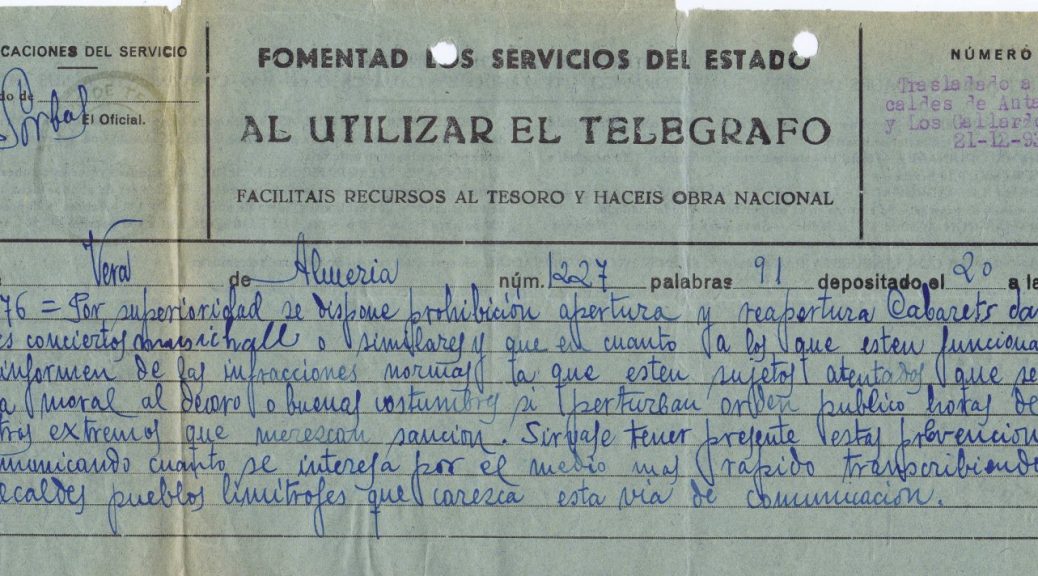 CACIONES DEL SERVICIO
do de
El Oficial.
FOMENTAD LOS SERVICIOS DEL ESTADO
AL UTILIZAR EL TELEGRAFO
FACILITAIS RECURSOS AL TESORO Y HACEIS OBRA NACIONAL
NÚMERO
Trasladado a
caldes de Anta
y Los Gallardo
21-12-93
Vera de Almeria núm. 1227 palabras 91 depositado el 20 a la
76 = Por superioridad se dispone prohibición apertura y reapertura Cabarets da
es conciertos musichall o similares y que en cuanto a los que esten funciona
informen de las infracciones normas a que esten sujetos atentados que se
a moral al decoro o buenas costumbres si perturban orden publico horas de
tros extremos que merescan sancion. Sirvase tener presente estas prevencion
municando cuanto se interesa por el medio mas rapido transcribiendo
ecaldes pueblos limitrofes que caresca esta via de comunicación.